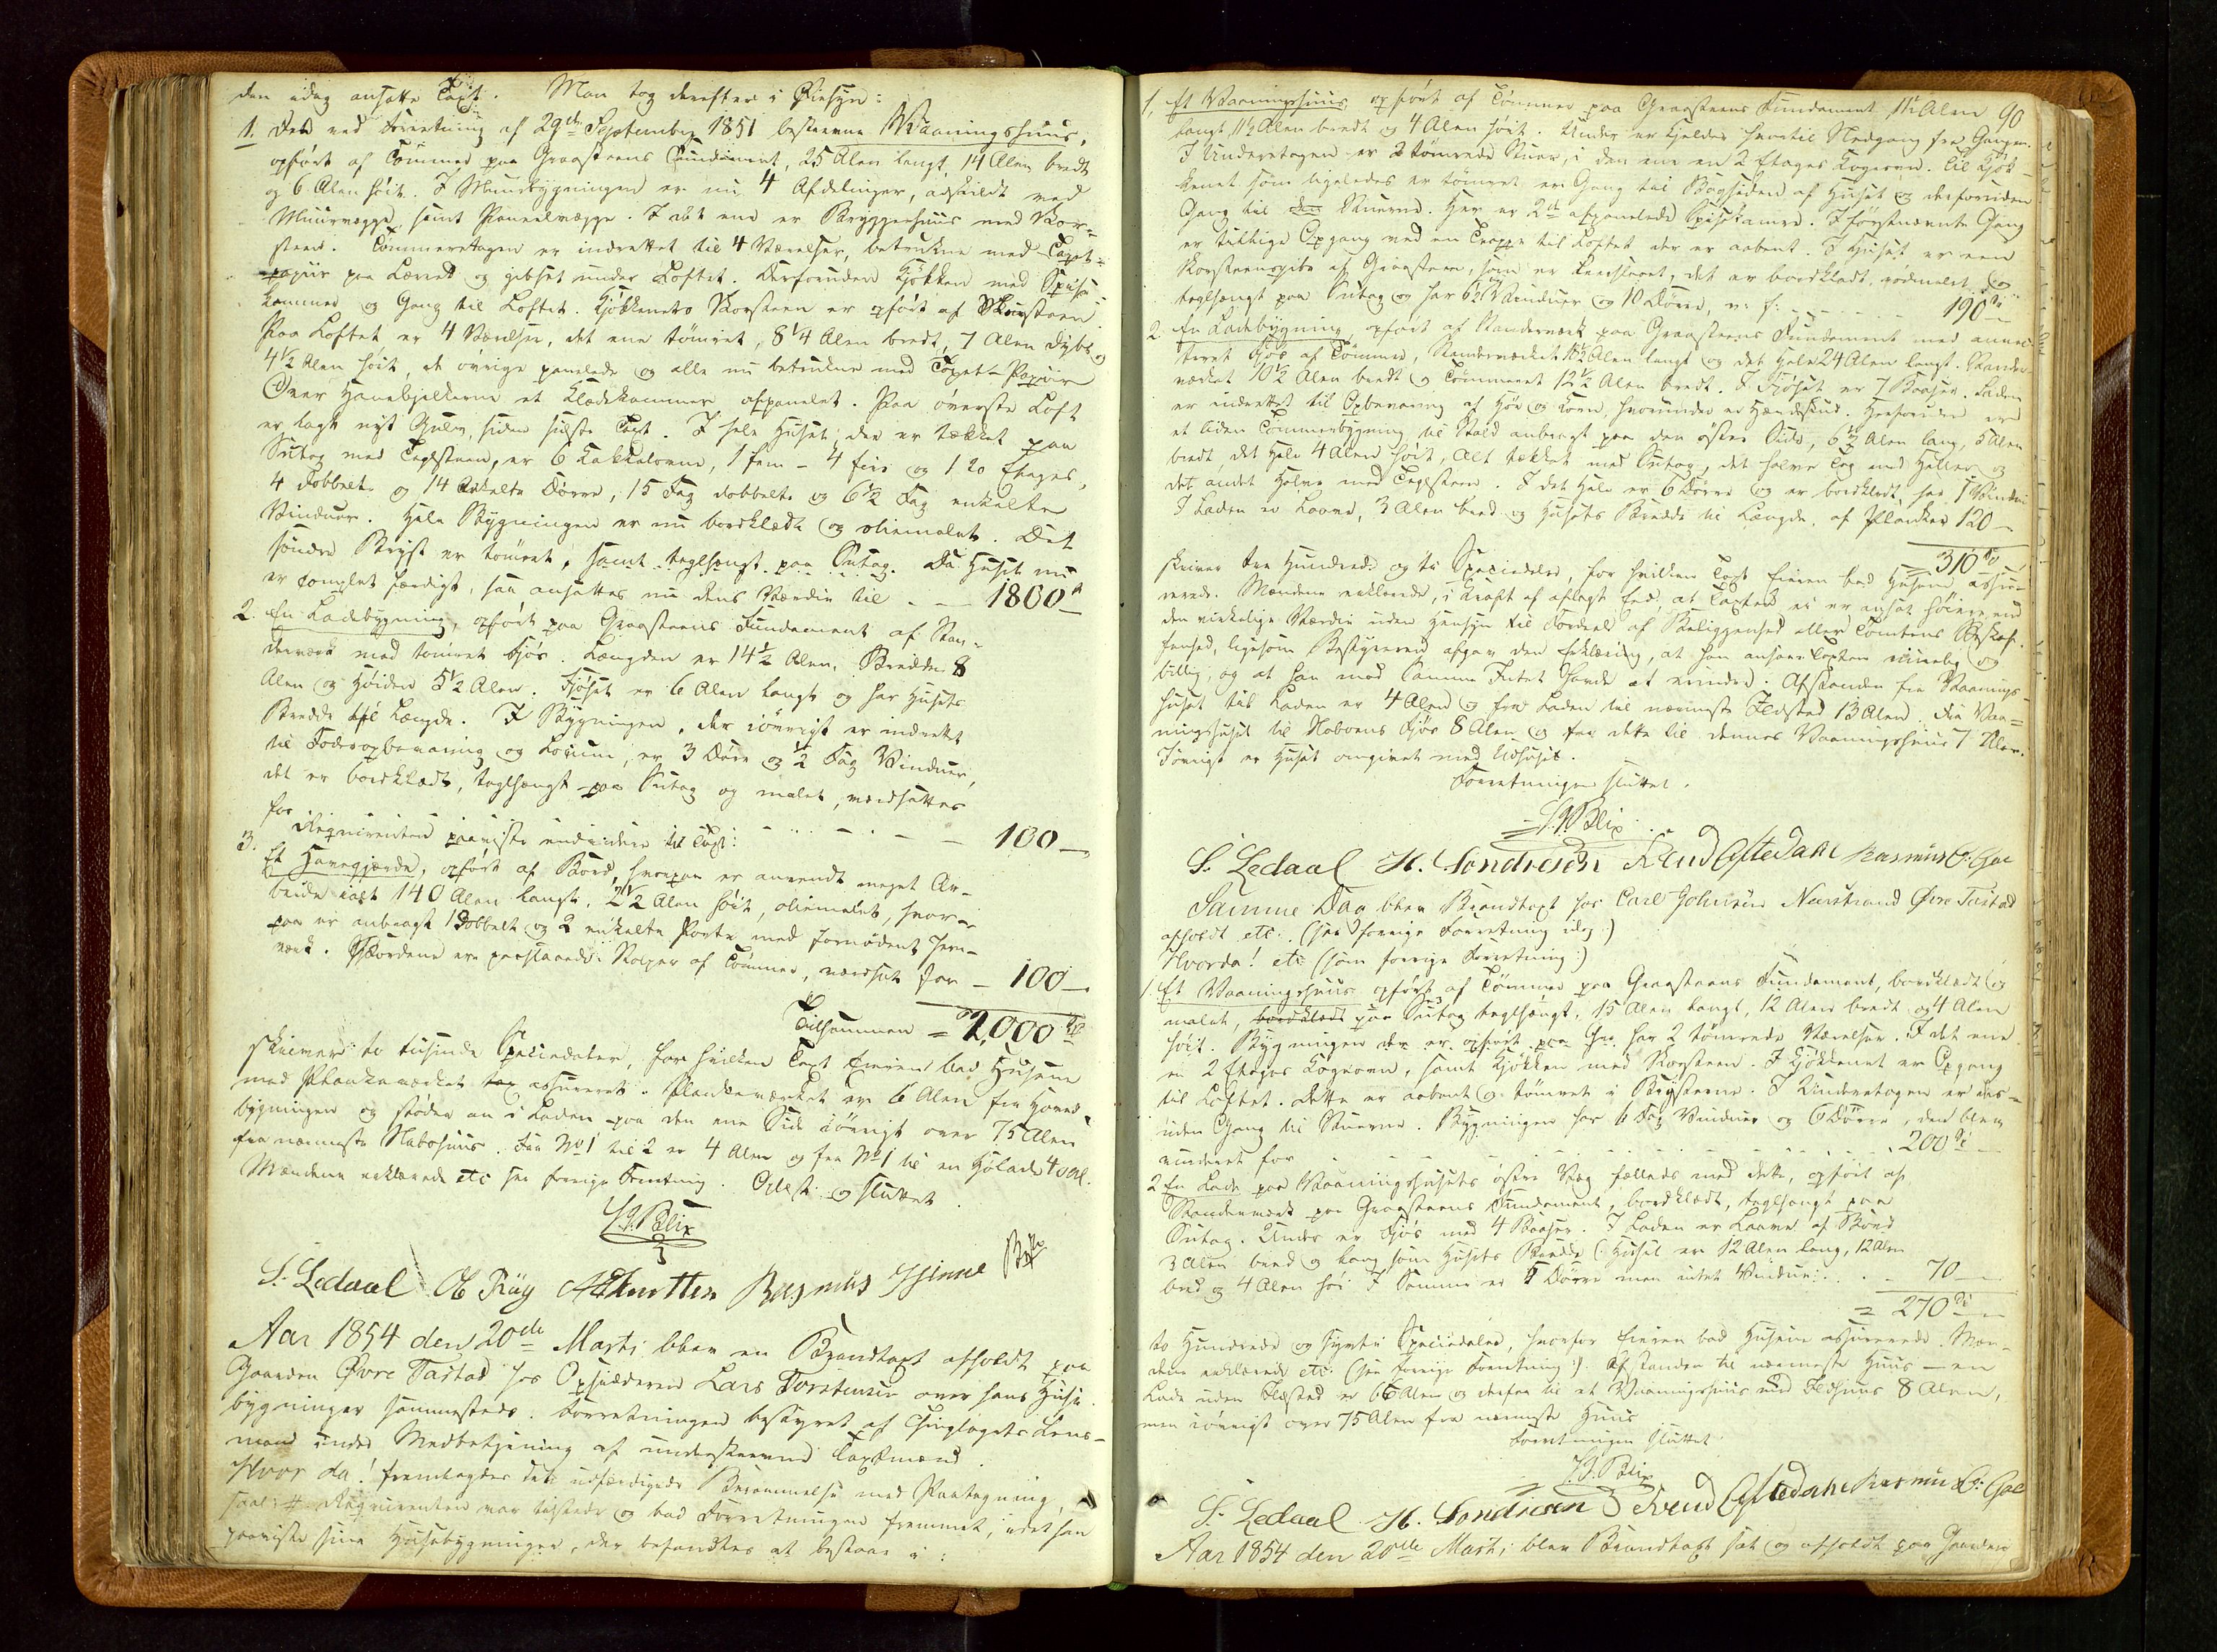 den idag ansatte Taxt. Man tog derefter i Øiesyn:
1. Den ved Forretning af 29de September 1851 beskrevne Vaaningshuus,
opført af Tømmer paa Graasteens Fundament, 25 Alen langt, 14 Alen bredt
og 6 Alen høit. I Muurbygningen er nu 4 Afdelinger, adskildt med
Muurvægge samt Paneelvægge. I det ene er Bryggerhuus med Skor-
steen. Tømmeretagen er indrettet til 4 Værelser, betrukne med Tapet-
papiir paa Lærred og gibset under Loftet. Desforuden Kjøkken med Spise
kammer og Gang til Loftet. Kjøkkenets Skorsteen er opført af Muursteen.
Paa Loftet er 4 Værelser, det ene tømret, 8 1/4 Alen bredt, 7 Alen dybt og
4 1/2 Alen høit, de øvrige panelede og alle nu betrukne med Tapet-Papiir
Over Hanebjelkerne et Klædekammer afpanelet. Paa øverste Loft
er lagt nyt Gulv, siden sidste Taxt. I hele Huset, der er tækket paa
Sutag med Teglsteen, er 6 Kakkelovne, 1 fem - 4 fire og 1 to Etages,
4 dobbelte og 14 enkelte Dørre, 15 Fag dobbelte og 6 1/2 Fag enkelte
Vinduer. Hele Bygningen er nu bordklædt og oliemalet. Det
søndre Bryst er tømret, samt teglhængt paa Sutag. Da Huset nu
er complet færdigt, saa ansattes nu dens Værdie til - - 1800 -
2. En Ladebygning, opført paa Graasteens Fundament af Stan-
derværk med tømret Fjøs. Længden er 14 1/2 Alen, Bredde 8
Alen og Høiden 5 1/2 Alen. Fjøset er 6 Alen langt og har Husets
Bredde til Længde. I Bygningen, der iøvrigt er indrettet
til Foderopbevaring og Locum, er 3 Døre og 1/2 Fag Vinduer,
det er bordklædt, teglhængt paa Sutag og malet, værdsattes
for - - - - - 100 -
Requirenten paaviste endvidere til Taxt:
3. Et Havegjærde, opført af Bord, hvorpaa er anvendt meget Ar-
beide ialt 140 Alen langt, 2 1/2 Alen høit, oliemalet, hvor-
paa er anbragt 1 dobbelt og 2 enkelte Porte med fornødent Jern-
værk. Bordene ere paaslaaede Stolper af Tømmer, værdsat for - 100 -
Tilsammen = 2,000
skriver to tusinde Speciedaler, for hvilken Taxt Eieren bad Husene
med Plankeværket assureret. Plankeværket er 6 Alen fra Hoved-
bygningen og støder an i Laden paa den ene Side iøvrigt over 75 Alen
fra nærmeste Nabohuus. Fra No 1 til 2 er 4 Alen og fra No 1 til en Hølade 40 Al.
Mændene erklærede etc see forrige Forretning. Oplæst og sluttet.
S. Blix
S. Ledaal Rasmus
Aar 1854 den 20de Marts blev en Brandtaxt afholdt paa
Gaarden Øvre Tastad hos Opsidderen Lars Torstensen over hans Huus-
bygninger sammesteds. Forretningen bestyret af Thinglagets Lens-
mand under Medbetjening af underskrevne Taxtmænd.
Hvor da! fremlagdes den udfærdigede Berammelse med Paategning,
saal: # Requirenten var tilstede og bad Forretningen fremmet, idet han
paaviste sine Husebygninger, der befandtes at bestaae i:
90
1. Et Vaaningshuus opført af Tømmer paa Graasteens Fundament 11 1/2 Alen
langt, 11 1/2 Alen bredt og 4 Alen høit. Under er Kjelder hvortil Nedgang fra Gangen.
I Underetagen er 2 tømrede Stuer, i den ene en 2 Etages Kogeovn. Til Kjøk-
kenet som ligeledes er tømret er Gang til Bagsiden af Huset og desforuden
Gang til Stuerne. Her er 2de afpanelede Spisekamre. I førstnævnte Gang
er tillige Opgang ved en Trappe til Loftet der er aabent. I Huset er een
Skorsteenspibe af Graasteen, det er bordklædt, rødmalet og
teglhængt paa Sutag og har 6 1/2 Vinduer og 10 Dørre, - - - 190 -
2. En Ladebygning, opført af Standerværk paa Graasteens Fundament med
Fjøs af Tømmer, Standerværket 11 1/2 Alen langt og det Hele 24 Alen langt. Stander-
værket 10 1/2 Alen bredt og Tømmeret 12 1/2 Alen bredt. I Fjøset er 7 Baaser. Laden
er indrettet til Opbevaring af Hø og Korn, hvorunder er
et liden Tømmerbygning til Stald anbragt paa den østre Side, 6 1/2 Alen lang, 5 Alen
bredt, det Hele 4 Alen høit, Alt tækket med Sutag, det halve Tag med Heller og
det andet Halve med Teglsteen. I det Hele er 6 Dørre og er bordklædt, har 1 Vindue
I Laden er Laave, 3 Alen bred og Husets Bredde til Længde, af Planker 120 -
310
skriver tre Hundrede og ti Speciedaler, for hvilken Taxt Eieren bad Husene assu-
rerede. Mændene erklærede, i Kraft af aflagt Eed, at Taxten ei er ansat høiere end
den virkelige Værdie uden Hensyn til Fordeel af Beliggenhed eller Tomtens Beskaf-
fenhed, ligesom Bestyreren afgav den Erklæring, at han ansaae Taxten rimelig og
billig, og at han mod Samme Intet havde at erindre. Afstanden fra Vaanings-
huset til Laden er 4 Alen og fra Laden til nærmeste Ildsted 13 Alen. Fra Vaa-
ningshuset til Naboens Fjøs 8 Alen og fra dette til dennes Vaaningshuus 7 Alen.
Iøvrigt er Huset omgivet med Udhuse.
Forretningen sluttet.
S. Blix
S. Ledaal H. Sondresen Svend Asteda­hl Rasmus
Samme Dag blev Brandtaxt hos Carl Johnsen Nærstrand Øvre Tastad
afholdt etc. (see forrige Forretning idag :)
Hvorda! etc (som forrige Forretning :)
1. Et Vaaningshuus opført af Tømmer paa Graasteens Fundament, bordklædt og
malet, paa Sutag teglhængt, 15 Alen langt, 12 Alen bredt og 4 Alen
høit. Bygningen har 2 tømrede Værelser. I det ene
en 2 Etages Kogeovn, samt Kjøkken med Skorsteen. I Kjøkkenet er Opgang
til Loftet. Dette er aabent og tømret i Brysterne. I Underetagen er des-
uden Gang til Stuerne. Bygningen har 6 Fag Vinduer og 6 Dørre, den blev
vurderet for - - - - 200 -
2. En Lade paa Vaaningshusets østre Væg fælleds med dette, opført af
Standerværk paa Graasteens Fundament, bordklædt, teglhængt paa
Sutag. Under er Fjøs med 4 Baaser. I Laden er Laave af Bord
3 Alen bred og lang som Husets Bredde (: Huset er 12 Alen lang, 12 Alen
bred og 4 Alen høi. I Samme er 5 Dørre men intet Vindue: - 70 -
= 270
to Hundrede og Sytti Speciedaler, hvorfor Eieren bad Husene assurerede. Mæn-
dene erklærede etc. (see forrige Forretning :). Afstanden til nærmeste Huus - en
Lade uden Ildsted er 6 Alen og derfra til et Vaaningshuus med Ildhuus 8 Alen,
men iøvrigt over 75 Alen fra nærmeste Huus
Forretningen sluttet
S. Blix
S. Ledaal H. Sondresen Svend Astedahl Rasmus
Aar 1854 den 20de Marts blev Brandtaxt sat og afholdt paa Gaarden